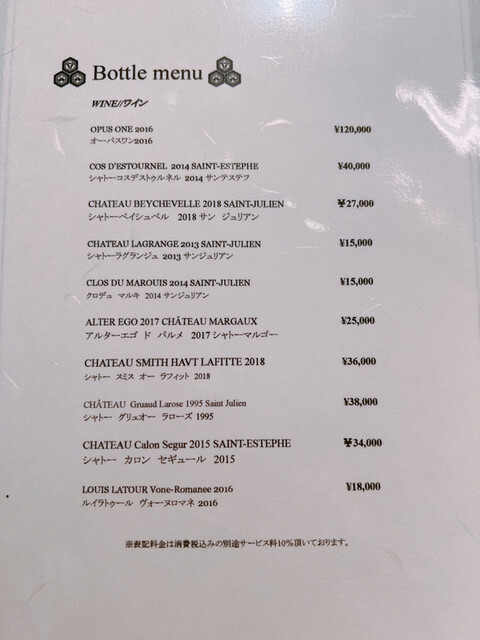 Bottle menu
WINE//ワイン
OPUS ONE 2016 ¥120,000
オーパスワン2016
COS D'ESTOURNEL 2014 SAINT-ESTEPHE ¥40,000
シャトーコスデストゥルネル 2014 サンテステフ
CHATEAU BEYCHEVELLE 2018 SAINT-JULIEN ¥27,000
シャトーベイシュベル 2018 サン ジュリアン
CHATEAU LAGRANGE 2013 SAINT-JULIEN ¥15,000
シャトーラグランジュ 2013 サンジュリアン
CLOS DU MAROUIS 2014 SAINT-JULIEN ¥15,000
クロデュ マルキ 2014 サンジュリアン
ALTER EGO 2017 CHÂTEAU MARGAUX ¥25,000
アルターエゴ ド パルメ 2017 シャトーマルゴー
CHATEAU SMITH HAVT LAFITTE 2018 ¥36,000
シャトー スミス オー ラフィット 2018
CHÂTEAU Gruaud Larose 1995 Saint Julien ¥38,000
シャトー グリュオー ラローズ 1995
CHATEAU Calon Segur 2015 SAINT-ESTEPHE ¥34,000
シャトー カロン セギュール 2015
LOUIS LATOUR Vone-Romanee 2016 ¥18,000
ルイラトゥール ヴォーヌロマネ 2016
※表記料金は消費税込みの別途サービス料10%頂いております。